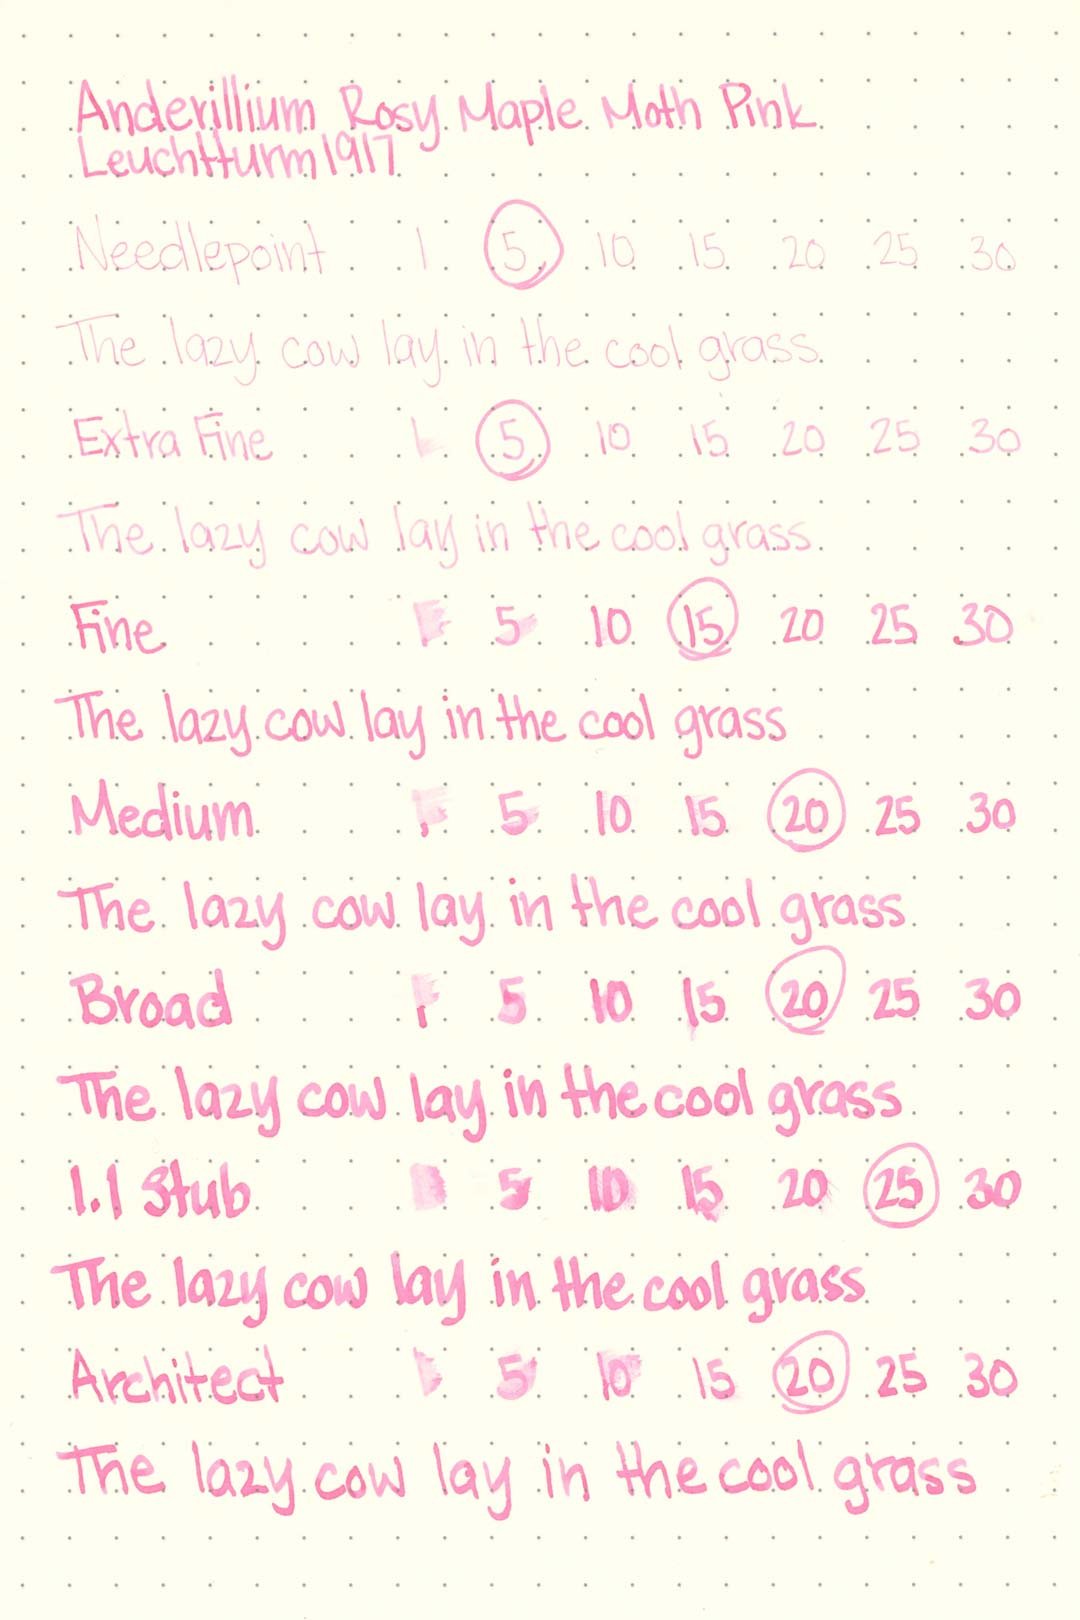 Anderillium Rosy Maple Moth Pink
Leuchtturm1917
Needlepoint 1 5 10 15 20 25 30
The lazy cow lay in the cool grass
Extra Fine 1 5 10 15 20 25 30
The lazy cow lay in the cool grass
Fine 1 5 10 15 20 25 30
The lazy cow lay in the cool grass
Medium 1 5 10 15 20 25 30
The lazy cow lay in the cool grass
Broad 1 5 10 15 20 25 30
The lazy cow lay in the cool grass
1.1 Stub 1 5 10 15 20 25 30
The lazy cow lay in the cool grass
Architect 1 5 10 15 20 25 30
The lazy cow lay in the cool grass